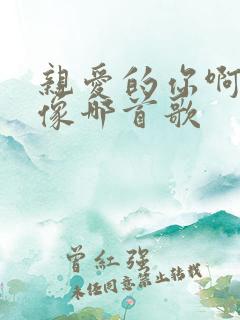 親愛的你啊
像那首歌
曾紅强
未经同意禁止转载